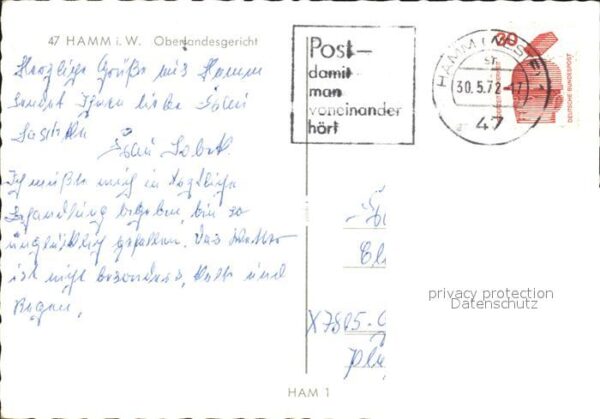 47 HAMM i. W. Oberlandesgericht
Herzliche Grüße aus Hamm
sendet Ihnen liebe Frau
Frau
Ich mußte mich in
Behandlung begeben, bin so
unglücklich gefallen. Das Wetter
ist nicht besonders, Kalt und
Regen.
Post-
damit
man
voneinander
hört
HAMM (WESTF) 1
30.5.72-17
47
30
DEUTSCHE BUNDESPOST
privacy protection
Datenschutz
X7805.
HAM 1